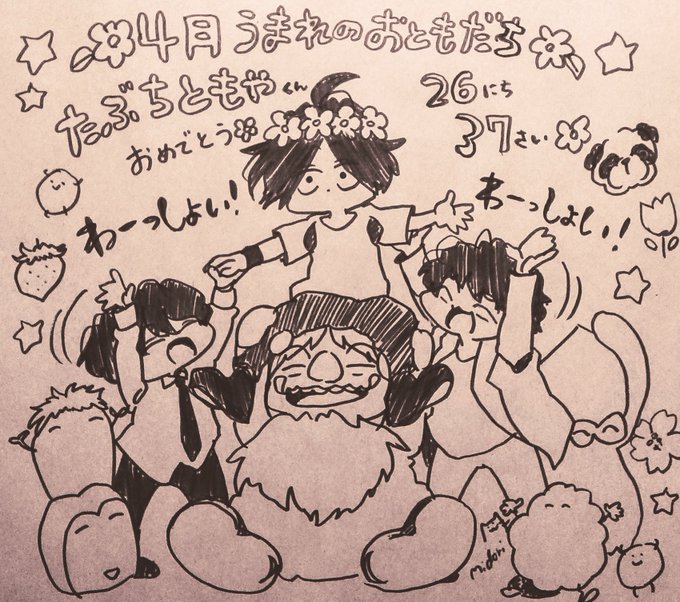 4月うまれのおともだち
たぶちともやくん
おめでとう
26にち
37さい
わーっしょい！
わーっしょい！！
midori